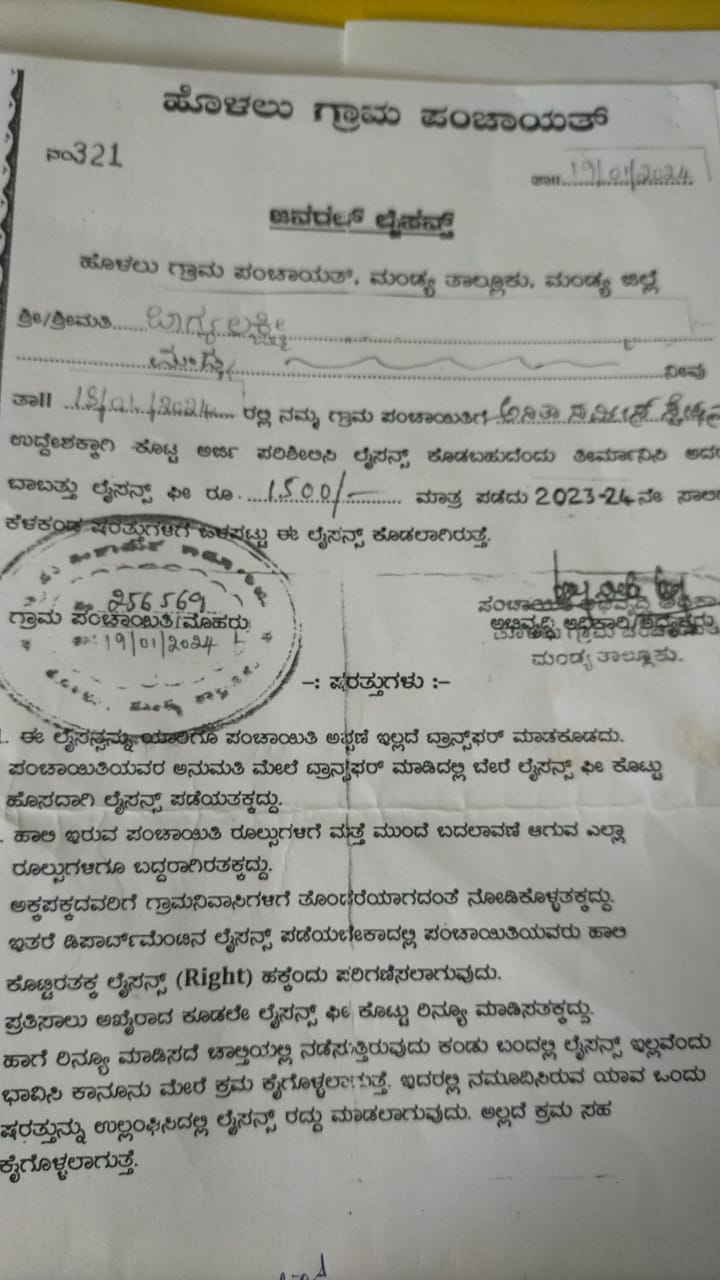 ಹೊಳಲು ಗ್ರಾಮ ಪಂಚಾಯತ್
ನಂ321
ತಾ॥ 19/01/2024
ಜನರಲ್ ಲೈಸನ್ಸ್
ಹೊಳಲು ಗ್ರಾಮ ಪಂಚಾಯತ್, ಮಂಡ್ಯ ತಾಲ್ಲೂಕು, ಮಂಡ್ಯ ಜಿಲ್ಲೆ
ಶ್ರೀ/ಶ್ರೀಮತಿ...... ಭಾಗ್ಯಲಕ್ಷ್ಮೀ
ಮಂಡ್ಯ ನೀವು
ತಾ॥ ರಲ್ಲಿ ನಮ್ಮ ಗ್ರಾಮ ಪಂಚಾಯಿತಿಗೆ
ಉದ್ದೇಶಕ್ಕಾಗಿ ಕೊಟ್ಟ ಅರ್ಜಿ ಪರಿಶೀಲಿಸಿ ಲೈಸನ್ಸ್ ಕೊಡಬಹುದೆಂದು ತೀರ್ಮಾನಿಸಿ ಅದರ
ಬಾಬತ್ತು ಲೈಸನ್ಸ್ ಫೀ ರೂ. 1500/- ಮಾತ್ರ ಪಡೆದು 2023-24ನೇ ಸಾಲಿ
ಕೆಳಕಂಡ ಷರತ್ತುಗಳಿಗೆ ಒಳಪಟ್ಟು ಈ ಲೈಸನ್ಸ್ ಕೊಡಲಾಗಿರುತ್ತೆ.
256569
ಗ್ರಾಮ ಪಂಚಾಯಿತಿ/ಮೊಹರು
19/01/2024
ಅಭಿವೃದ್ಧಿ ಅಧಿಕಾರಿ/ಅಧ್ಯಕ್ಷರು
ಮಂಡ್ಯ ತಾಲ್ಲೂಕು.
-: ಷರತ್ತುಗಳು :-
1. ಈ ಲೈಸನ್ಸನ್ನು ಯಾರಿಗೂ ಪಂಚಾಯಿತಿ ಅಪ್ಪಣೆ ಇಲ್ಲದೆ ಟ್ರಾನ್ಸ್‌ಫರ್ ಮಾಡಕೂಡದು.
ಪಂಚಾಯಿತಿಯವರ ಅನುಮತಿ ಮೇಲೆ ಟ್ರಾನ್ಸಫರ್ ಮಾಡಿದಲ್ಲಿ ಬೇರೆ ಲೈಸನ್ಸ್ ಫೀ ಕೊಟ್ಟು
ಹೊಸದಾಗಿ ಲೈಸನ್ಸ್ ಪಡೆಯತಕ್ಕದ್ದು.
ಹಾಲಿ ಇರುವ ಪಂಚಾಯಿತಿ ರೂಲ್ಸುಗಳಿಗೆ ಮತ್ತೆ ಮುಂದೆ ಬದಲಾವಣೆ ಆಗುವ ಎಲ್ಲಾ
ರೂಲ್ಸುಗಳಿಗೂ ಬದ್ದರಾಗಿರತಕ್ಕದ್ದು.
ಅಕ್ಕಪಕ್ಕದವರಿಗೆ ಗ್ರಾಮನಿವಾಸಿಗಳಿಗೆ ತೊಂದರೆಯಾಗದಂತೆ ನೋಡಿಕೊಳ್ಳತಕ್ಕದ್ದು.
ಇತರೆ ಡಿಪಾರ್ಟ್‌ಮೆಂಟಿನ ಲೈಸನ್ಸ್ ಪಡೆಯಬೇಕಾದಲ್ಲಿ ಪಂಚಾಯಿತಿಯವರು ಹಾಲಿ
ಕೊಟ್ಟಿರತಕ್ಕ ಲೈಸನ್ಸ್ (Right) ಹಕ್ಕೆಂದು ಪರಿಗಣಿಸಲಾಗುವುದು.
ಪ್ರತಿಸಾಲು ಅಖೈರಾದ ಕೂಡಲೇ ಲೈಸನ್ಸ್ ಫೀ ಕೊಟ್ಟು ರಿನ್ಯೂ ಮಾಡಿಸತಕ್ಕದ್ದು.
ಹಾಗೆ ರಿನ್ಯೂ ಮಾಡಿಸದೆ ಚಾಲ್ತಿಯಲ್ಲಿ ನಡೆಸುತ್ತಿರುವುದು ಕಂಡು ಬಂದಲ್ಲಿ ಲೈಸನ್ಸ್ ಇಲ್ಲವೆಂದು
ಭಾವಿಸಿ ಕಾನೂನು ಮೇರೆ ಕ್ರಮ ಕೈಗೊಳ್ಳಲಾಗುತ್ತೆ. ಇದರಲ್ಲಿ ನಮೂದಿಸಿರುವ ಯಾವ ಒಂದು
ಷರತ್ತುನ್ನು ಉಲ್ಲಂಘಿಸಿದಲ್ಲಿ ಲೈಸನ್ಸ್ ರದ್ದು ಮಾಡಲಾಗುವುದು. ಅಲ್ಲದೆ ಕ್ರಮ ಸಹ
ಕೈಗೊಳ್ಳಲಾಗುತ್ತೆ.